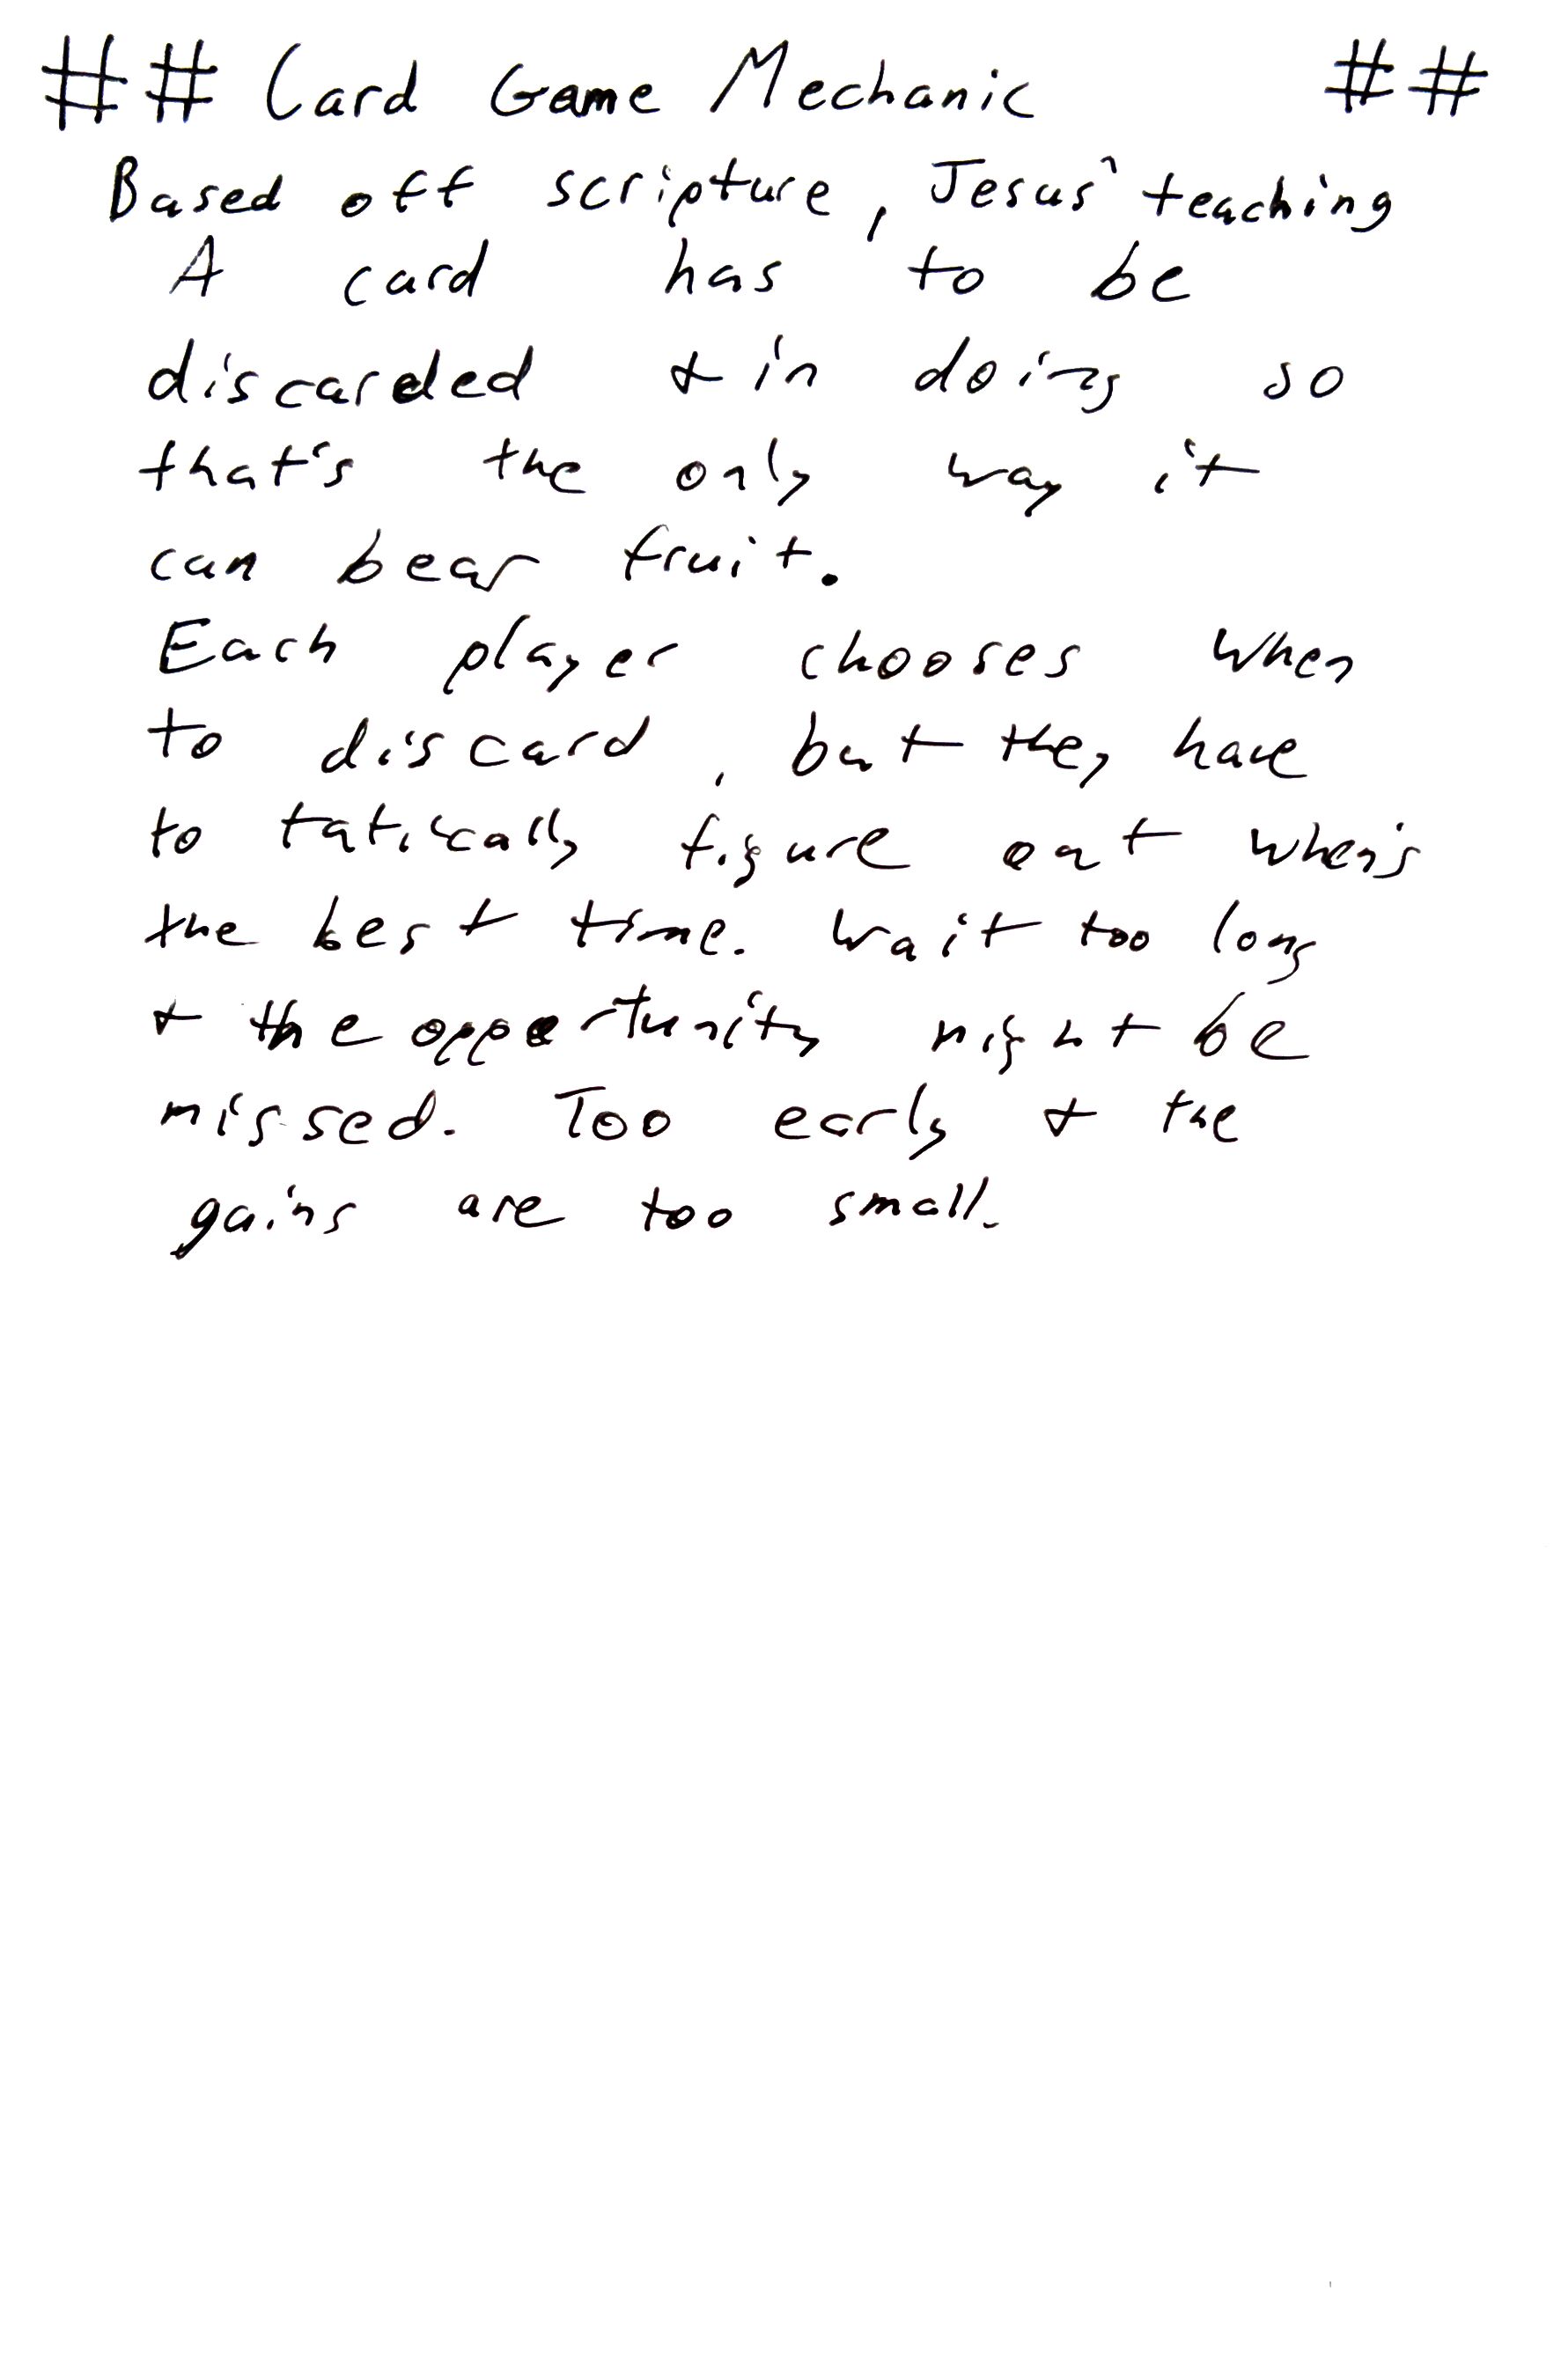 ## Card Game Mechanic ##
Based off scripture, Jesus' teaching
A card has to be
discarded & in doing so
that's the only way it
can bear fruit.
Each player chooses when
to discard, but they have
to tatically figure out when's
the best time. Wait too long
& the opportunity might be
missed. Too early & the
gains are too small.